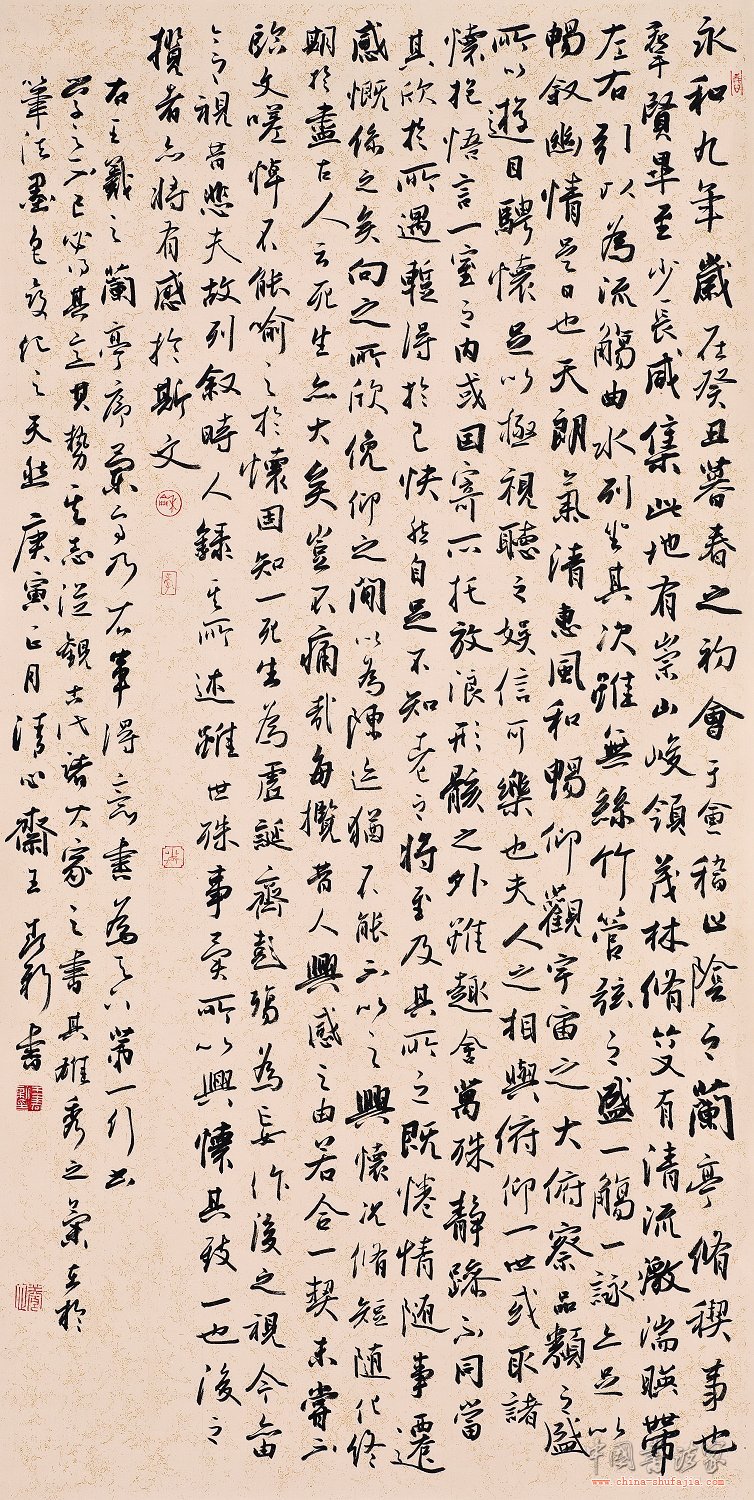 永和九年歲在癸丑暮春之初會于會稽山陰之蘭亭脩稧事也
羣賢畢至少長咸集此地有崇山峻領茂林脩竹又有清流激湍暎帶
左右引以為流觴曲水列坐其次雖無絲竹管弦之盛一觴一詠亦足以
暢敘幽情是日也天朗氣清惠風和暢仰觀宇宙之大俯察品類之盛
所以遊目騁懷足以極視聽之娛信可樂也夫人之相與俯仰一世或取諸
懷抱悟言一室之內或因寄所托放浪形骸之外雖趣舍萬殊靜躁不同當
其欣於所遇暫得於己快然自足不知老之將至及其所之既惓情隨事遷
感慨係之矣向之所欣俛仰之間以為陳迹猶不能不以之興懷況脩短隨化終
期於盡古人云死生亦大矣豈不痛哉每攬昔人興感之由若合一契未嘗不
臨文嗟悼不能喻之於懷固知一死生為虛誕齊彭殤為妄作後之視今亦由
今之視昔悲夫故列敘時人錄其所述雖世殊事異所以興懷其致一也後之
攬者亦將有感於斯文
右王羲之蘭亭序乃右軍得意書為天下第一行書
學之不已必得其意其勢其志從觀古代諸大家之書其雄秀之氣出於
筆法墨色變化之天然庚寅正月清心齋王新書
中國書法家
www.china-shufajia.com